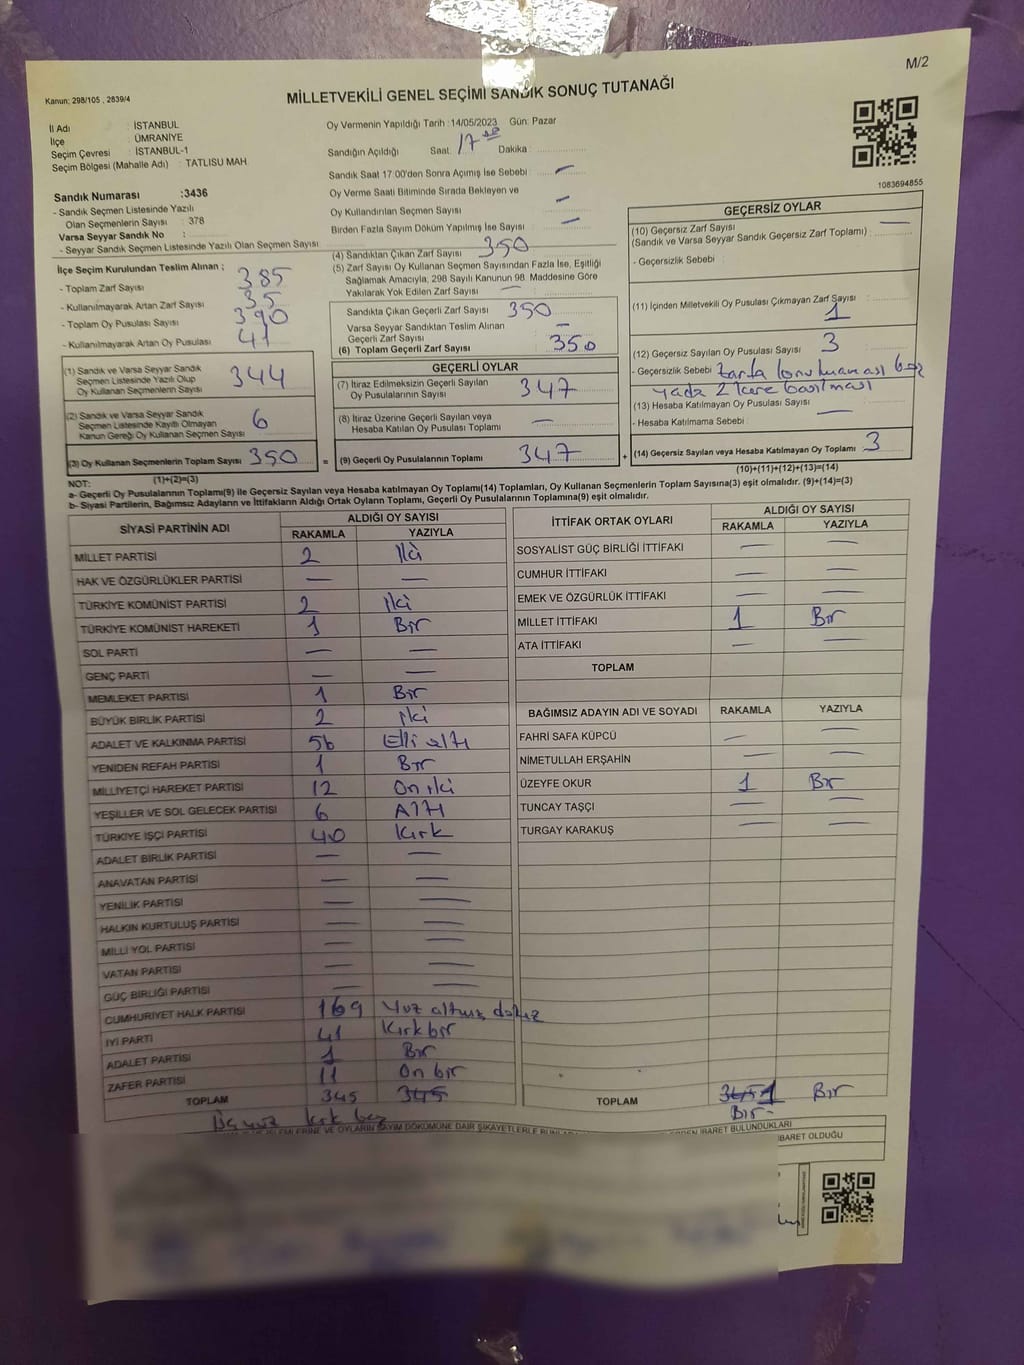 M/2
Kanun: 298/105 , 2839/4
MİLLETVEKİLİ GENEL SEÇİMİ SANDIK SONUÇ TUTANAĞI
İl Adı : İSTANBUL
İlçe : ÜMRANİYE
Seçim Çevresi : İSTANBUL-1
Seçim Bölgesi (Mahalle Adı) : TATLISU MAH
Oy Vermenin Yapıldığı Tarih :14/05/2023 Gün: Pazar
Sandığın Açıldığı Saat: 17 Dakika:
Sandık Saat 17:00'den Sonra Açımış İse Sebebi —
Oy Verme Saati Bitiminde Sırada Bekleyen ve
Oy Kullandırılan Seçmen Sayısı —
Birden Fazla Sayım Döküm Yapılmış İse Sayısı —
1083694855
Sandık Numarası :3436
- Sandık Seçmen Listesinde Yazılı
Olan Seçmenlerin Sayısı : 378
Varsa Seyyar Sandık No :
- Seyyar Sandık Seçmen Listesinde Yazılı Olan Seçmen Sayısı
İlçe Seçim Kurulundan Teslim Alınan ;
- Toplam Zarf Sayısı 385
- Kullanılmayarak Artan Zarf Sayısı 35
- Toplam Oy Pusulası Sayısı 390
- Kullanılmayarak Artan Oy Pusulası 41
(1) Sandık ve Varsa Seyyar Sandık
Seçmen Listesinde Yazılı Olup
Oy Kullanan Seçmenlerin Sayısı 344
(2) Sandık ve Varsa Seyyar Sandık
Seçmen Listesinde Kayıtlı Olmayan
Kanun Gereği Oy Kullanan Seçmen Sayısı 6
(3) Oy Kullanan Seçmenlerin Toplam Sayısı 350
(1)+(2)=(3)
(4) Sandıktan Çıkan Zarf Sayısı 350
(5) Zarf Sayısı Oy Kullanan Seçmen Sayısından Fazla İse, Eşitliği
Sağlamak Amacıyla, 298 Sayılı Kanunun 98. Maddesine Göre
Yakılarak Yok Edilen Zarf Sayısı —
Sandıkta Çıkan Geçerli Zarf Sayısı 350
Varsa Seyyar Sandıktan Teslim Alınan
Geçerli Zarf Sayısı —
(6) Toplam Geçerli Zarf Sayısı 350
GEÇERLİ OYLAR
(7) İtiraz Edilmeksizin Geçerli Sayılan
Oy Pusulalarının Sayısı 347
(8) İtiraz Üzerine Geçerli Sayılan veya
Hesaba Katılan Oy Pusulası Toplamı —
= (9) Geçerli Oy Pusulalarının Toplamı 347 +
GEÇERSİZ OYLAR
(10) Geçersiz Zarf Sayısı —
(Sandık ve Varsa Seyyar Sandık Geçersiz Zarf Toplamı) :
- Geçersizlik Sebebi :
(11) İçinden Milletvekili Oy Pusulası Çıkmayan Zarf Sayısı : 1
(12) Geçersiz Sayılan Oy Pusulası Sayısı 3
- Geçersizlik Sebebi
yada 2 kere basılması
(13) Hesaba Katılmayan Oy Pusulası Sayısı —
- Hesaba Katılmama Sebebi :
(14) Geçersiz Sayılan veya Hesaba Katılmayan Oy Toplamı 3
(10)+(11)+(12)+(13)=(14)
NOT:
a- Geçerli Oy Pusulalarının Toplamı(9) ile Geçersiz Sayılan veya Hesaba katılmayan Oy Toplamı(14) Toplamları, Oy Kullanan Seçmenlerin Toplam Sayısına(3) eşit olmalıdır. (9)+(14)=(3)
b- Siyasi Partilerin, Bağımsız Adayların ve İttifakların Aldığı Ortak Oyların Toplamı, Geçerli Oy Pusulalarının Toplamına(9) eşit olmalıdır.
SİYASİ PARTİNİN ADI ALDIĞI OY SAYISI
RAKAMLA YAZIYLA
MİLLET PARTİSİ 2 İki
HAK VE ÖZGÜRLÜKLER PARTİSİ — —
TÜRKİYE KOMÜNİST PARTİSİ 2 iki
TÜRKİYE KOMÜNİST HAREKETİ 1 Bir
SOL PARTİ — —
GENÇ PARTİ — —
MEMLEKET PARTİSİ 1 Bir
BÜYÜK BİRLİK PARTİSİ 2 iki
ADALET VE KALKINMA PARTİSİ 56 Elli altı
YENİDEN REFAH PARTİSİ 1 Bir
MİLLİYETÇİ HAREKET PARTİSİ 12 On iki
YEŞİLLER VE SOL GELECEK PARTİSİ 6 Altı
TÜRKİYE İŞÇİ PARTİSİ 40 Kırk
ADALET BİRLİK PARTİSİ — —
ANAVATAN PARTİSİ — —
YENİLİK PARTİSİ — —
HALKIN KURTULUŞ PARTİSİ — —
MİLLİ YOL PARTİSİ — —
VATAN PARTİSİ — —
GÜÇ BİRLİĞİ PARTİSİ — —
CUMHURİYET HALK PARTİSİ 169 Yüz altmış dokuz
İYİ PARTİ 41 Kırk bir
ADALET PARTİSİ 1 Bir
ZAFER PARTİSİ 11 On bir
TOPLAM 345 345
Üç yüz kırk beş
İTTİFAK ORTAK OYLARI ALDIĞI OY SAYISI
RAKAMLA YAZIYLA
SOSYALİST GÜÇ BİRLİĞİ İTTİFAKI — —
CUMHUR İTTİFAKI — —
EMEK VE ÖZGÜRLÜK İTTİFAKI — —
MİLLET İTTİFAKI 1 Bir
ATA İTTİFAKI — —
TOPLAM
BAĞIMSIZ ADAYIN ADI VE SOYADI RAKAMLA YAZIYLA
FAHRİ SAFA KÜPCÜ — —
NİMETULLAH ERŞAHİN — —
ÜZEYFE OKUR 1 Bir
TUNCAY TAŞÇI — —
TURGAY KARAKUŞ — —
TOPLAM 345 1 Bir
Bir
OYLARIN SAYIM DÖKÜMÜNE DAİR ŞİKAYETLERLE
İBARET BULUNDUKLARI
İBARET OLDUĞU